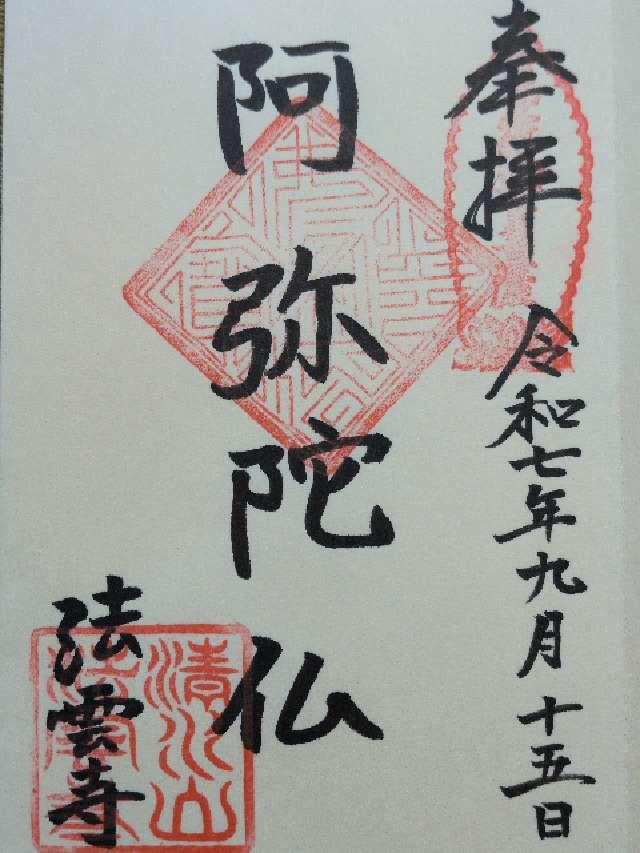 奉拝
令和七年九月十五日
阿弥陀仏
法雲寺